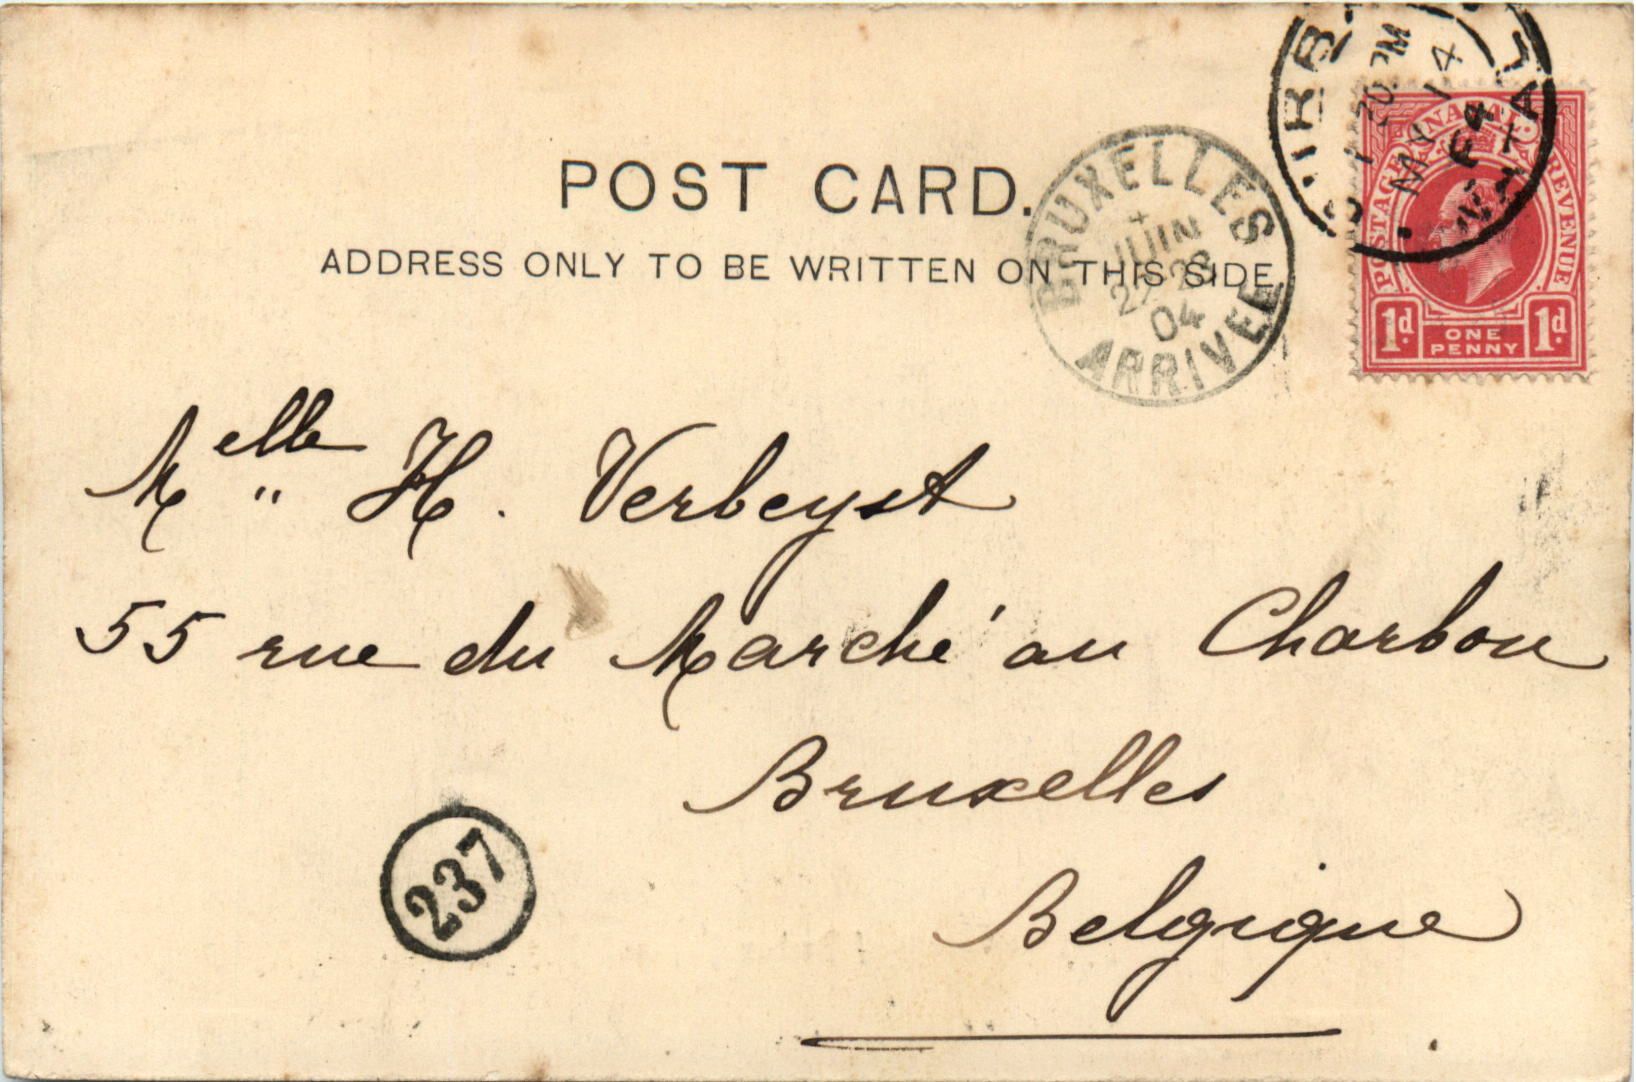 POST CARD.
ADDRESS ONLY TO BE WRITTEN ON THIS SIDE
BRUXELLES
JUIN
04
ARRIVEE
DURBAN
MY 14
04
NATAL
NATAL
POSTAGE REVENUE
1d ONE PENNY 1d
Melle H. Verbeyst
55 rue du Marché au Charbon
Bruxelles
Belgique
237